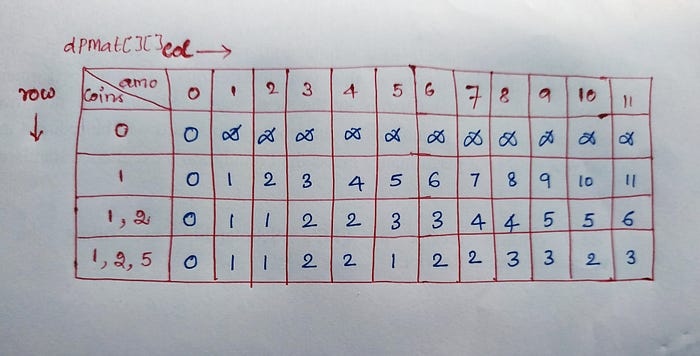 dPMat[][] col →
row ↓
coins amo 0 1 2 3 4 5 6 7 8 9 10 11
0 0 ∞ ∞ ∞ ∞ ∞ ∞ ∞ ∞ ∞ ∞ ∞
1 0 1 2 3 4 5 6 7 8 9 10 11
1, 2 0 1 1 2 2 3 3 4 4 5 5 6
1, 2, 5 0 1 1 2 2 1 2 2 3 3 2 3